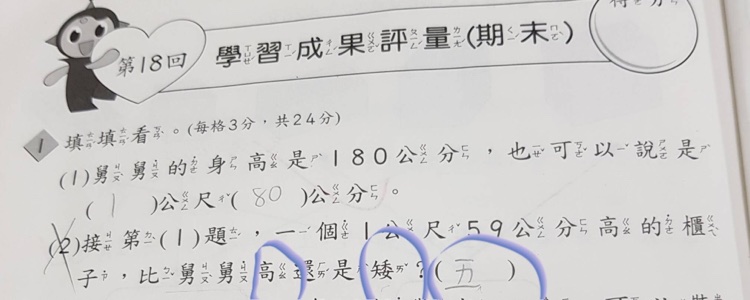 得分
第18回
學習成果評量(期末)
1 填填看。(每格3分,共24分)
(1)舅舅的身高是180公分,也可以說是
(1)公尺(80)公分。
(2)接第(1)題,一個1公尺59公分高的櫃
子,比舅舅高還是矮?(ㄞ)